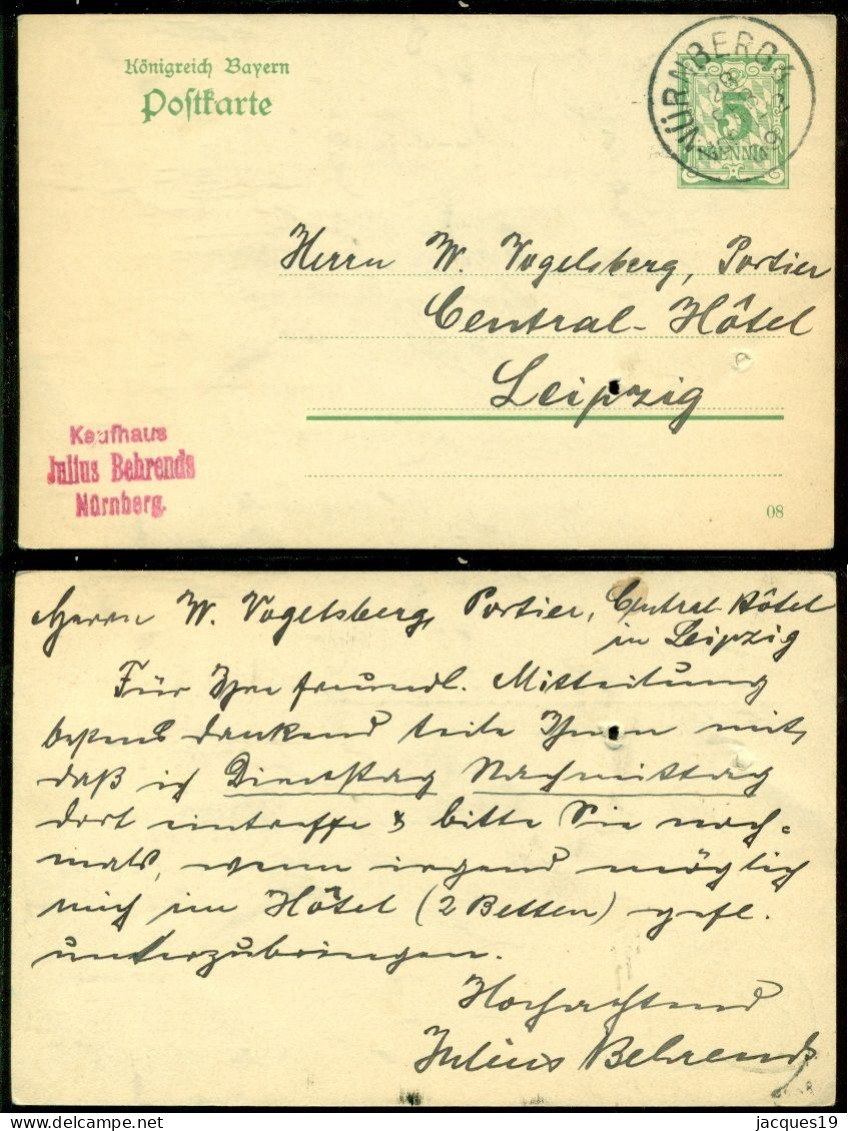 Königreich Bayern
Postkarte
NÜRNBERG
5
PFENNIG
Herrn W. Vogelsberg, Portier
Central-Hôtel
Leipzig
Kaufhaus
Julius Behrends
Nürnberg.
08
Herrn W. Vogelsberg, Portier, Central-Hôtel
in Leipzig
Für Ihre freundl. Mitteilung
bestens dankend teile Ihnen mit,
daß ich Dienstag Nachmittag
dort eintreffe & bitte Sie noch=
mals, wenn irgend möglich
mich im Hôtel (2 Betten) gefl.
unterzubringen.
Hochachtend
Julius Behrends
jacques19